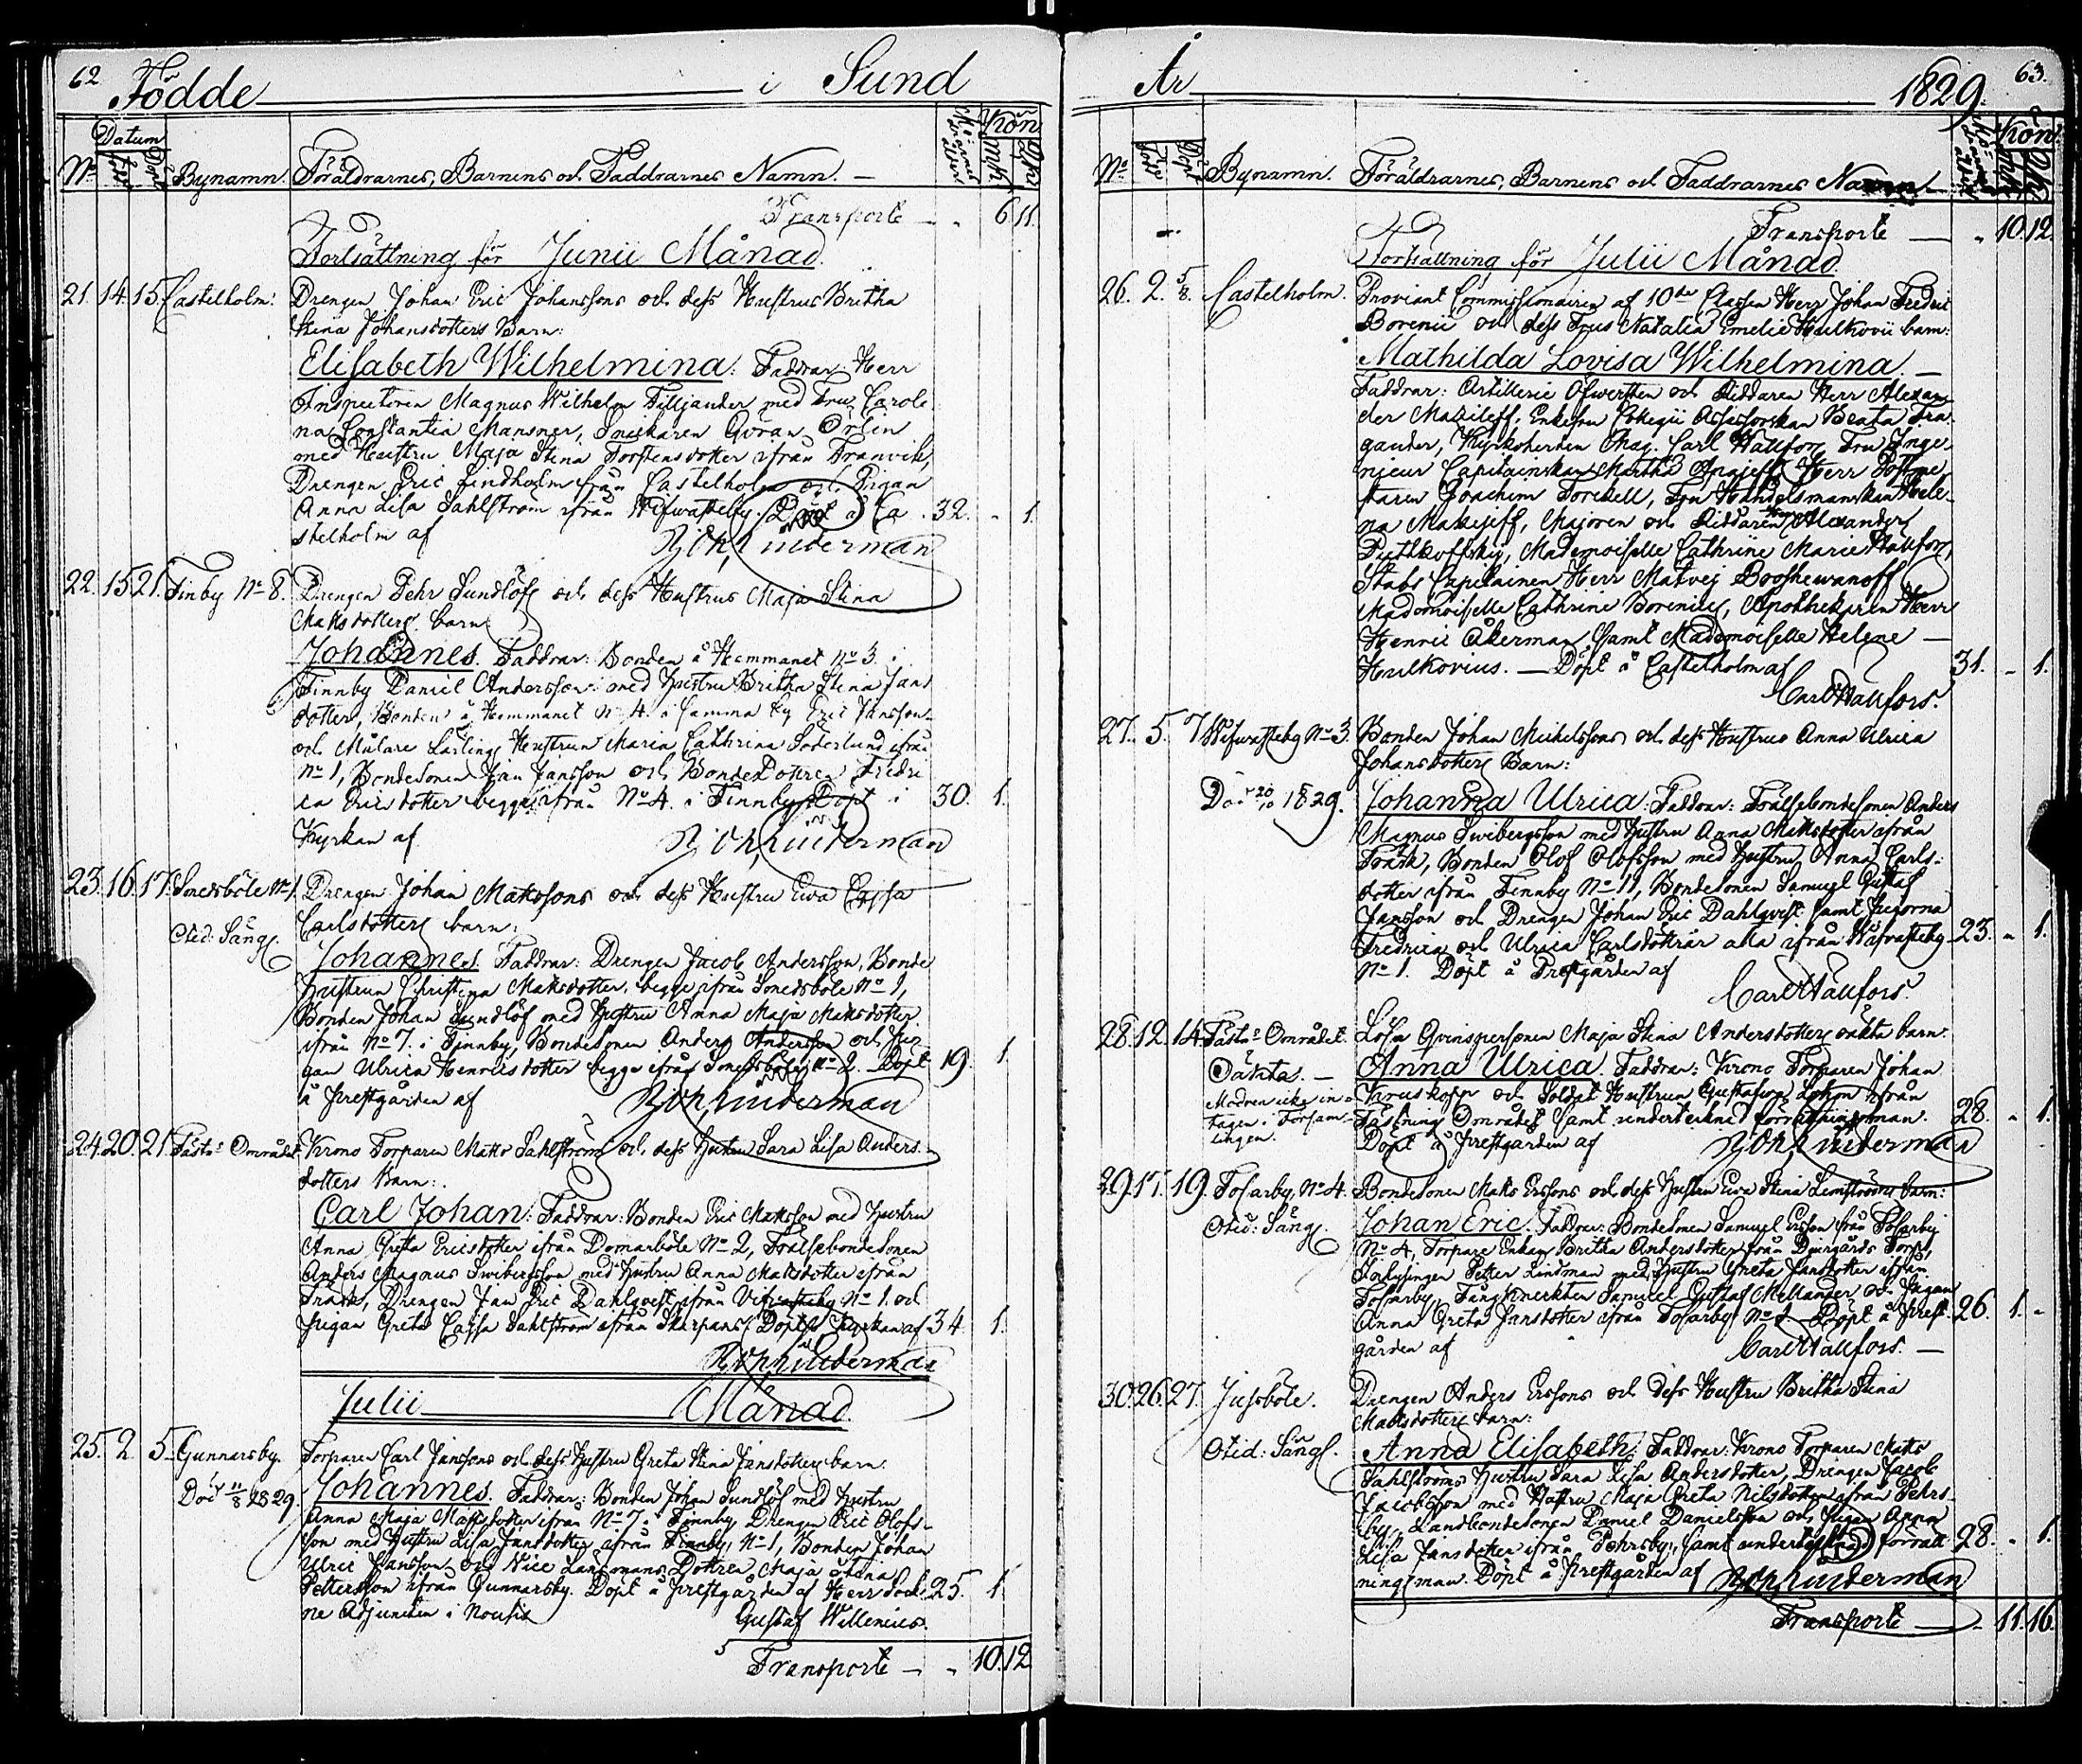 62 Födde i Sund
Datum Mödrarnes ålder Kön
No Född Döpt Bynamn. Föräldrarnes, Barnens och Faddrarnes Namn. — Mk Qk
Transporte — " 6 11.
Fortsättning för Junii Månad.
21. 14. 15. Castelholm: Drengen Johan Eric Johanssons och dess Hustrus Britha
Stina Johansdotters Barn:
Elisabeth Wilhelmina. Faddrar: Herr
Inspectoren Magnus Wilhelm Silljander med Fru Caroli-
na Constantia Mansner, Snickaren Göran Örlin
med Hustru Maja Stina Torstensdotter ifrån Tranvik,
Drengen Eric Lindholm ifrån Castelholm och Pigan
Anna Lisa Sahlström ifrån Wifvastby. Döpt å Ca- 32. - 1.
stelholm af Joh. Linderman
22. 15. 21. Finby No 8. Drengen Pehr Sundlöfs och dess Hustrus Maja Stina
Matsdotters barn
Johannes. Faddrar: Bonden å Hemmanet No 3 i
Finnby Daniel Andersson med hustru Britha Stina Jans
dotter, Bonden å Hemmanet No 4 i samma by Eric Jansson
och Målare Lärlings Hustrun Maria Cathrina Söderlund ifrån
No 1, Bondesonen Jan Jansson och BondeDottren Fredri
ca Ericsdotter begge ifrån No 4. i Finnby. Döpt i 30. 1.
Kyrkan af Joh. Linderman
23. 16. 17. Smedsböle No 1. Drengen Johan Matssons och dess Hustru Eva Cajsa
Carlsdotters barn:
Otid: Säng.
Johannes. Faddrar: Drengen Jacob Andersson, Bonde
hustrun Christina Matsdotter, begge ifrån Smedsböle No 1,
Bonden Johan Sundlöf med Hustru Anna Maja Matsdotter
ifrån No 7. i Finnby, Bondesonen Anders Andersson och Pi-
gan Ulrica Henricsdotter begge ifrån Smedsböle No 2. Döpt 19. 1.
å Prestgården af Joh. Linderman
24. 20. 21. Fästn: Området. Krono Torparen Matts Sahlströms och dess hustru Sara Lisa Anders-
dotters Barn:
Carl Johan: Faddrar: Bonden Eric Matsson med hustru
Anna Greta Ericsdotter ifrån Domarböle No 2, Frälsebondesonen
Anders Magnus Swibergsson med hustru Anna Matsdotter ifrån
Träsk, Drengen Jan Eric Dahlqvist ifrån Vifvasteby No 1. och
Pigan Greta Cajsa Sahlström ifrån Skarpans. Döpt i Kyrkan af 34. 1.
Joh. Linderman
Julii Månad.
25. 2 5. Gunnarsby. Torparen Carl Janssons och dess hustru Greta Stina Jansdotters barn:
Död 11/8 1829. Johannes. Faddrar: Bonden Johan Sundlöf med hustru
Anna Maja Matsdotter ifrån No 7 i Finnby Drengen Eric Olofs-
son med hustru Lisa Jansdotter ifrån Finnby, No 1, Bonden Johan
Ulric Jansson och Vice Länsmans Dottren Maja Stina
Pettersson ifrån Gunnarsby. Döpt å Prestgården af Herr Sock- 25. 1.
ne Adjuncten i Nousis Gustaf Willenius.
Transporte — " 10. 12
År 1829. 63.
Mödrarnes ålder Kön.
No Född Döpt Bynamn. Föräldrarnes, Barnens och Faddrarnes Namn. Mk Qk
Transporte — " 10. 12.
Fortsättning för Julii Månad.
26. 2. 5/8. Castelholm. Proviant Commissionairen af 10de Classen Herr Johan Fredric
Borenii och dess Frus Natalia Emelie Hulkovii barn:
Mathilda Lovisa Wilhelmina. —
Faddrar: Artillerie Öfwersten och Riddaren Herr Alexan
der Makileff, Enkefru Collegii Assessorskan Beata Tra-
gander, Kyrkoherden Mag. Carl Wallfors, Fru Inge-
nieur Capitainskan Martha Apajeff, Herr Postme
staren Joachim Toredell, Fru Handelsmanskan Hele-
na Makejeff, Majoren och Riddaren Herr Alexander
Puthkoffskij, Mademoiselle Cathrine Marie Wallfors,
Stabs Capitainen Herr Matvej Booshewanoff
Madomoiselle Cathrine Borenius, Apothekaren Herr
Henric Åkerman samt Mademoiselle Helene —
Hulkovius. — Döpt å Castelholm af 31. - 1.
Carl Wallfors.
27. 5. 7. Wifvastebg No 3. Bonden Johan Michelssons och dess Hustrus Anna Ulrica
Johansdotters Barn:
Död 20/10 1829. Johanna Ulrica. Faddrar: Frälsebondesonen Anders
Magnus Swibergsson med hustru Anna Matsdotter ifrån
Träsk, Bonden Olof Olofsson med hustru Anna Carls-
dotter ifrån Finnby No 11, Bondesonen Samuel Gustaf
Jansson och Drengen Johan Eric Dahlqvist samt Pigorna
Fredrica och Ulrica Carlsdöttrar alla ifrån Wifvasteby 23. " 1.
No 1. Döpt å Prestgården af Carl Wallfors.
28. 12. 14. Fästn: Området. Lösa Qvinspersonen Maja Stina Andersdotters oäkta barn:
Oäkta. — Anna Ulrica. Faddrar: Krono Torparen Johan
Modren icke in- Kruskopf och Soldat Hustrun Gustafva Lohm ifrån
tagen i Försam- Fästning Området samt undertecknad förrättningsman. 28. " 1.
lingen. Döpt å Prestgården af Joh. Linderman
29. 17. 19. Tosarby, No 4. Bondesonen Mats Erssons och dess hustru Eva Stina Lemströms barn:
Otid: Säng. Johan Eric. Faddrar: Bondesonen Samuel Ersson från Tosarby
No 4, Torpare Enkan Britha Andersdotter från Djurgårds Torp,
Inhysingen Petter Lindman med hustru Greta Jansdotter ifrån
Tosarby, Timmerkten Samuel Gustaf Mellander och Pigan
Anna Greta Jansdotter ifrån Tosarby No 1. Döpt å Prest- 26. 1. -
gården af Carl Wallfors. —
30. 26. 27. Jussböle. Drengen Anders Erssons och dess Hustru Britha Stina
Matsdotters barn:
Otid: Säng. Anna Elisabeth. Faddrar: Krono Torparen Matts
Sahlströms hustru Sara Lisa Andersdotter, Drengen Jacob
Jacobsson med Hustru Maja Greta Nilsdotter ifrån Pehrs-
by, Landbondesonen Daniel Danielsson och Pigan Anna
Lisa Jansdotter ifrån Pehrsby, samt undertecknad förrätt- 28. " 1.
ningsman. Döpt å Prestgården af Joh. Linderman
Transporte — " 11. 16.